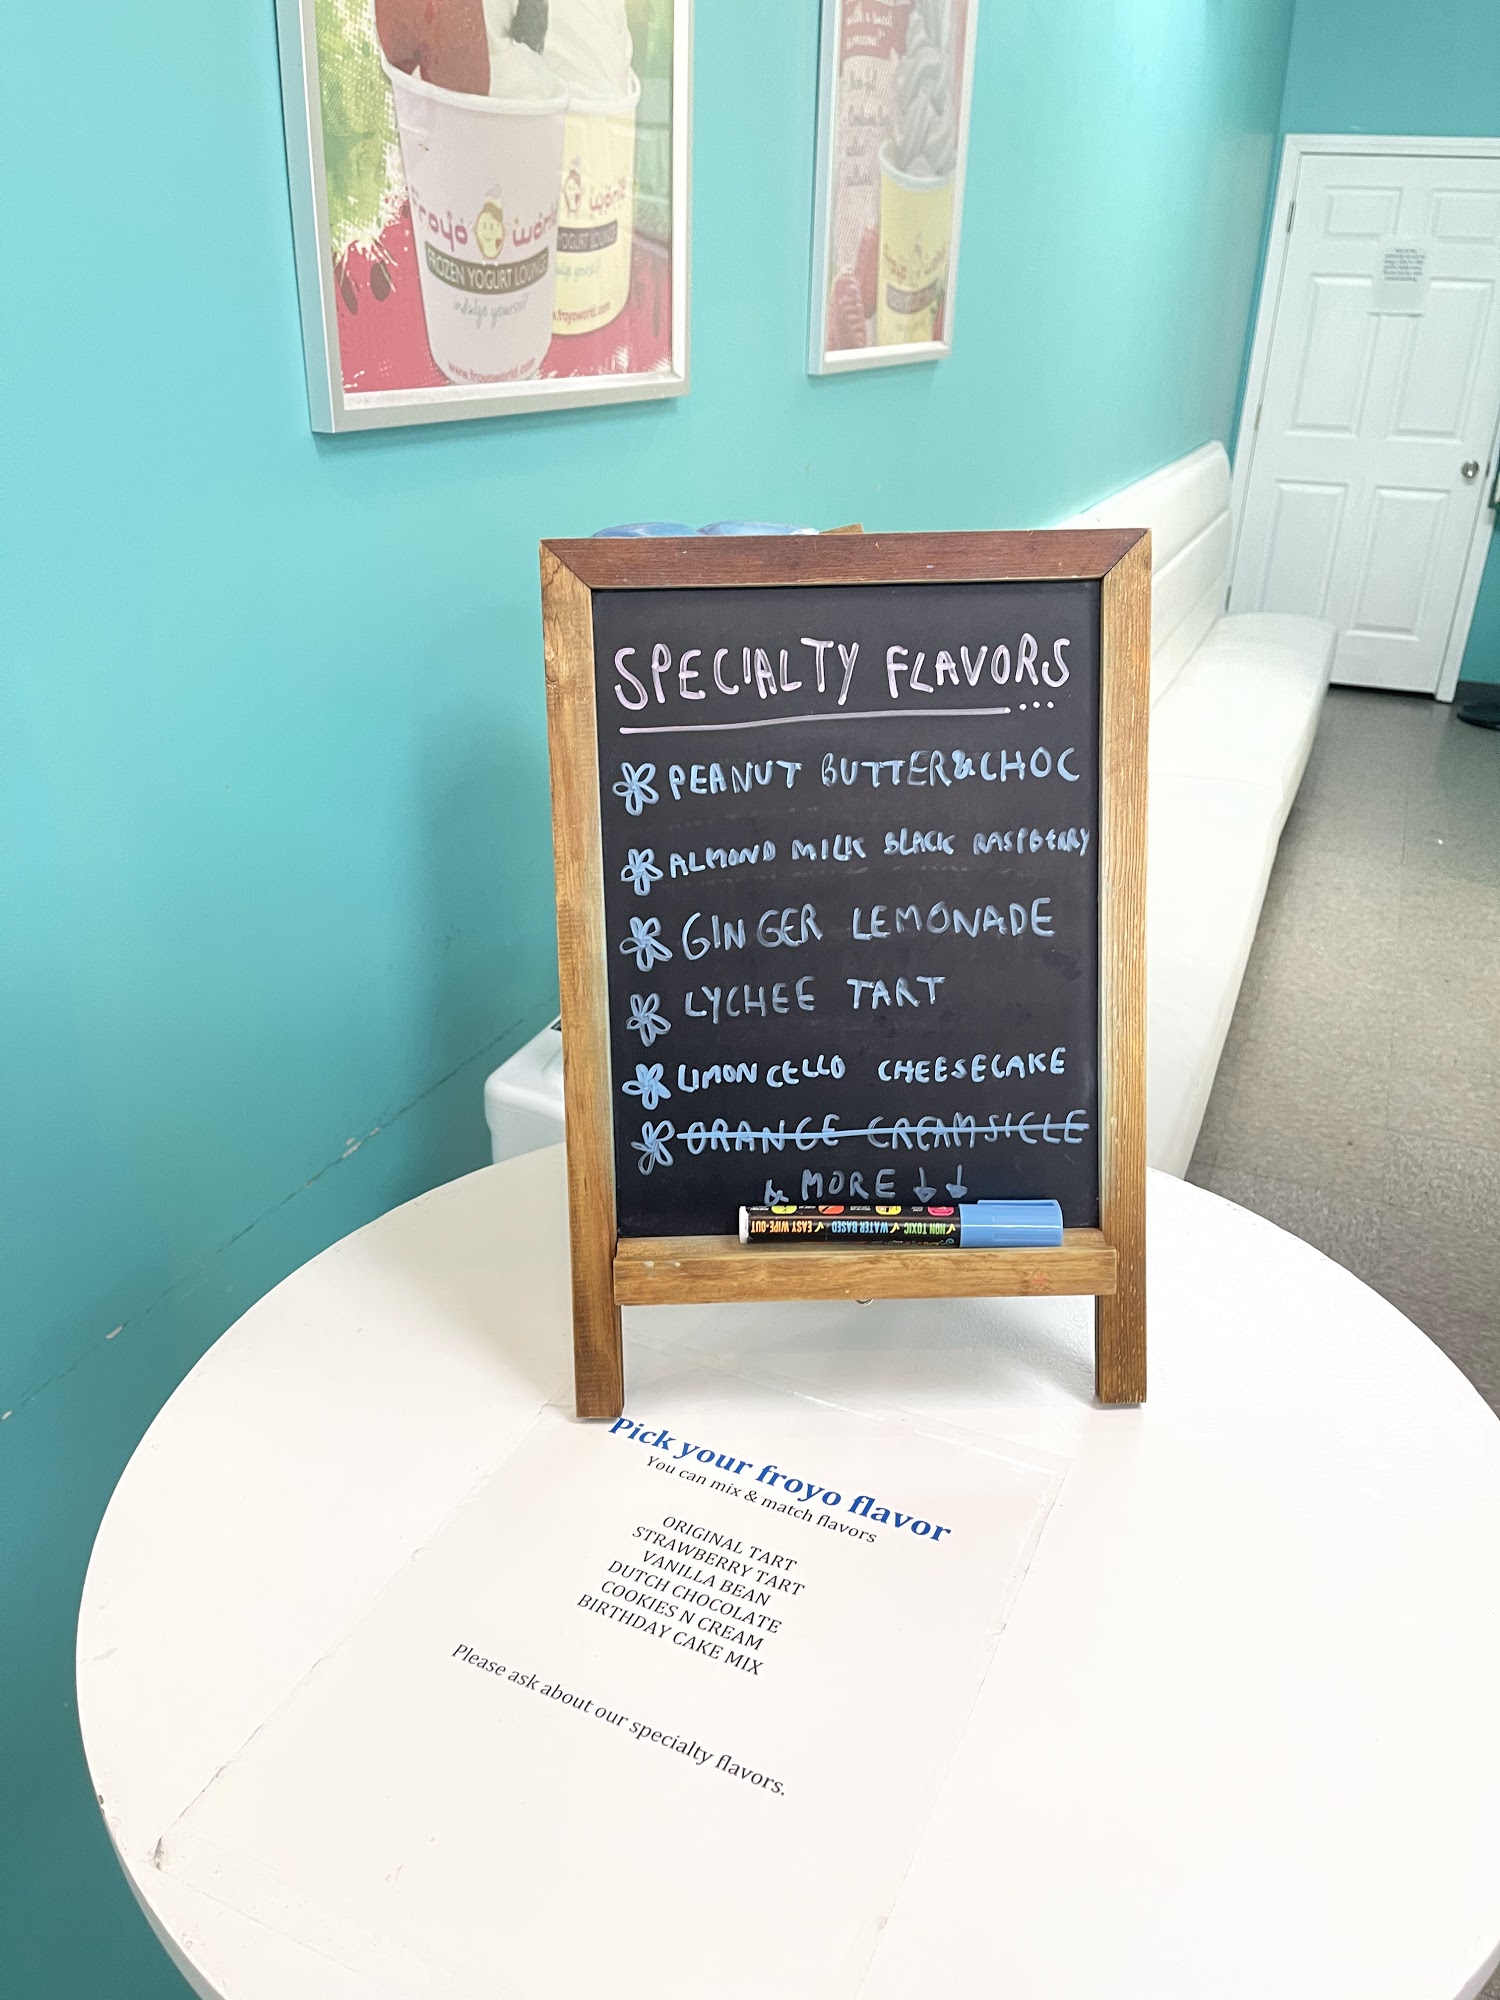 Froyo world
FROZEN YOGURT LOUNGE
indulge yourself
www.froyoworld.com
world
YOGURT LOUNGE
.froyoworld.com
with a sweet
someone!
SPECIALTY FLAVORS...
PEANUT BUTTER&CHOC
ALMOND MILK BLACK RASPBERRY
GINGER LEMONADE
LYCHEE TART
LIMONCELLO CHEESECAKE
ORANGE CREAMSICLE
& MORE ↓↓
NON TOXIC ✓ WATER BASED ✓ EASY WIPE-OUT
Pick your froyo flavor
You can mix & match flavors
ORIGINAL TART
STRAWBERRY TART
VANILLA BEAN
DUTCH CHOCOLATE
COOKIES N CREAM
BIRTHDAY CAKE MIX
Please ask about our specialty flavors.